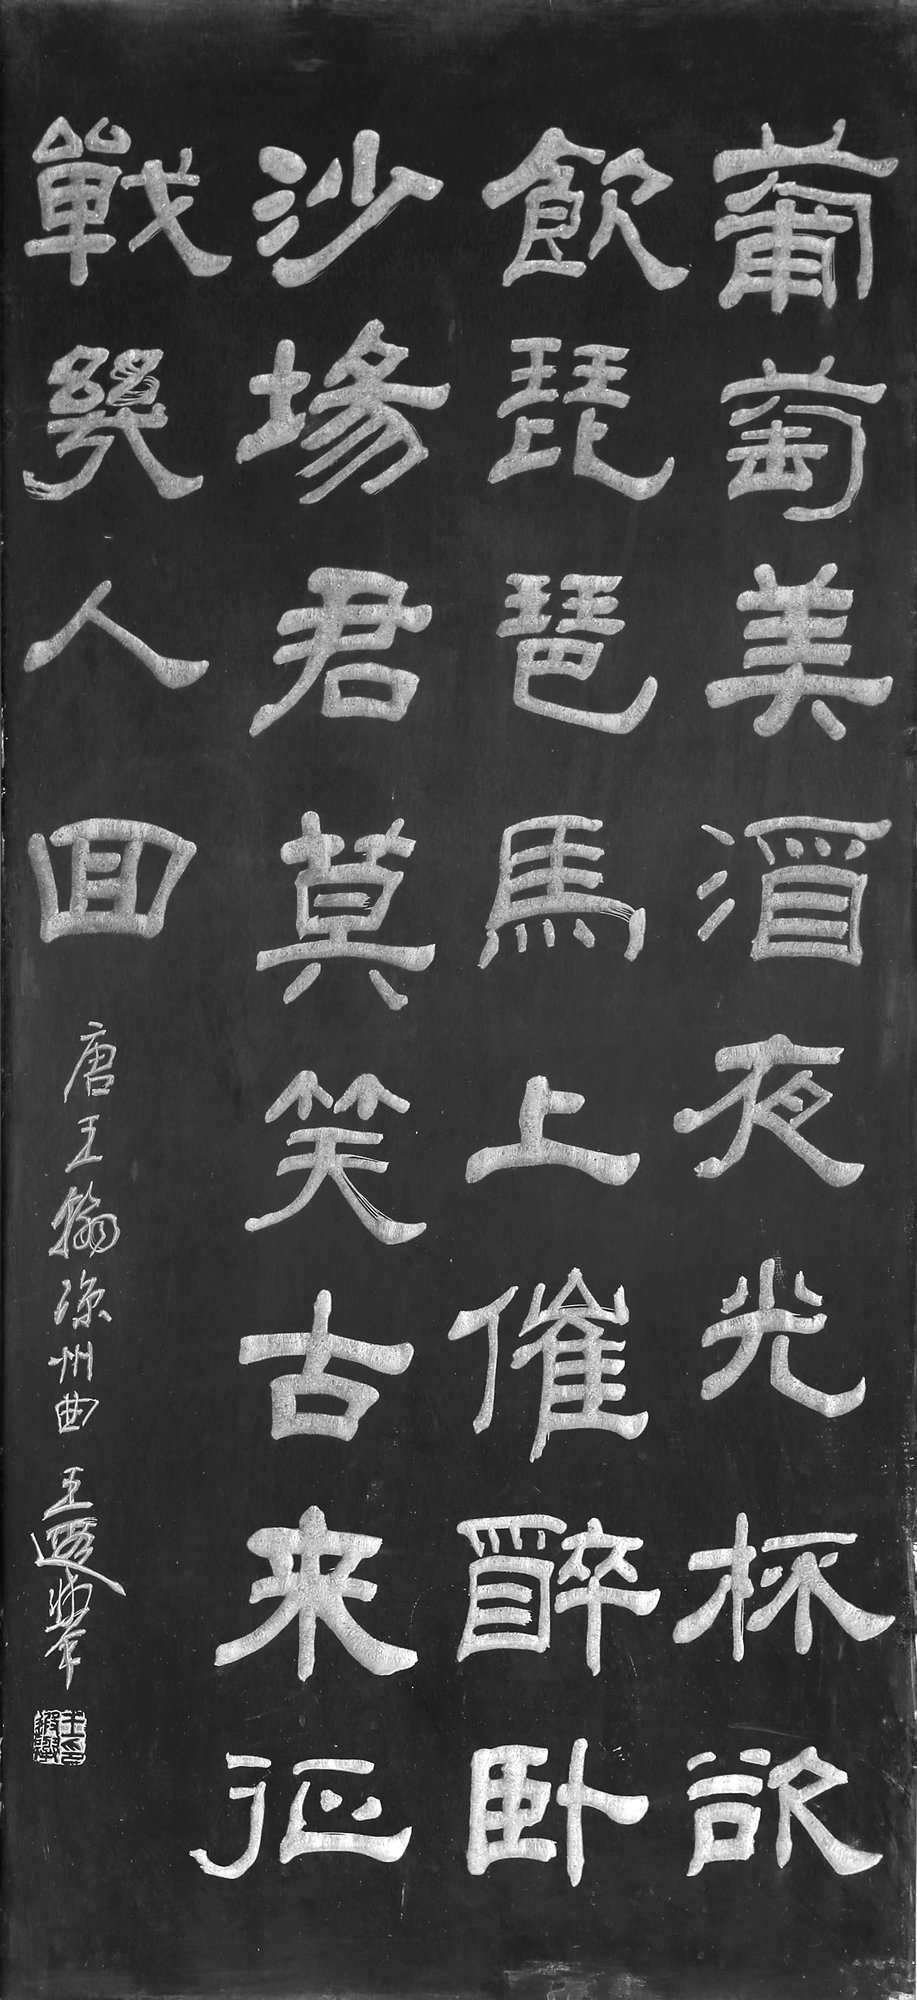 葡萄美酒夜光杯欲
飲琵琶馬上催醉卧
沙場君莫笑古来征
戰幾人回
唐王翰涼州曲 王遐舉